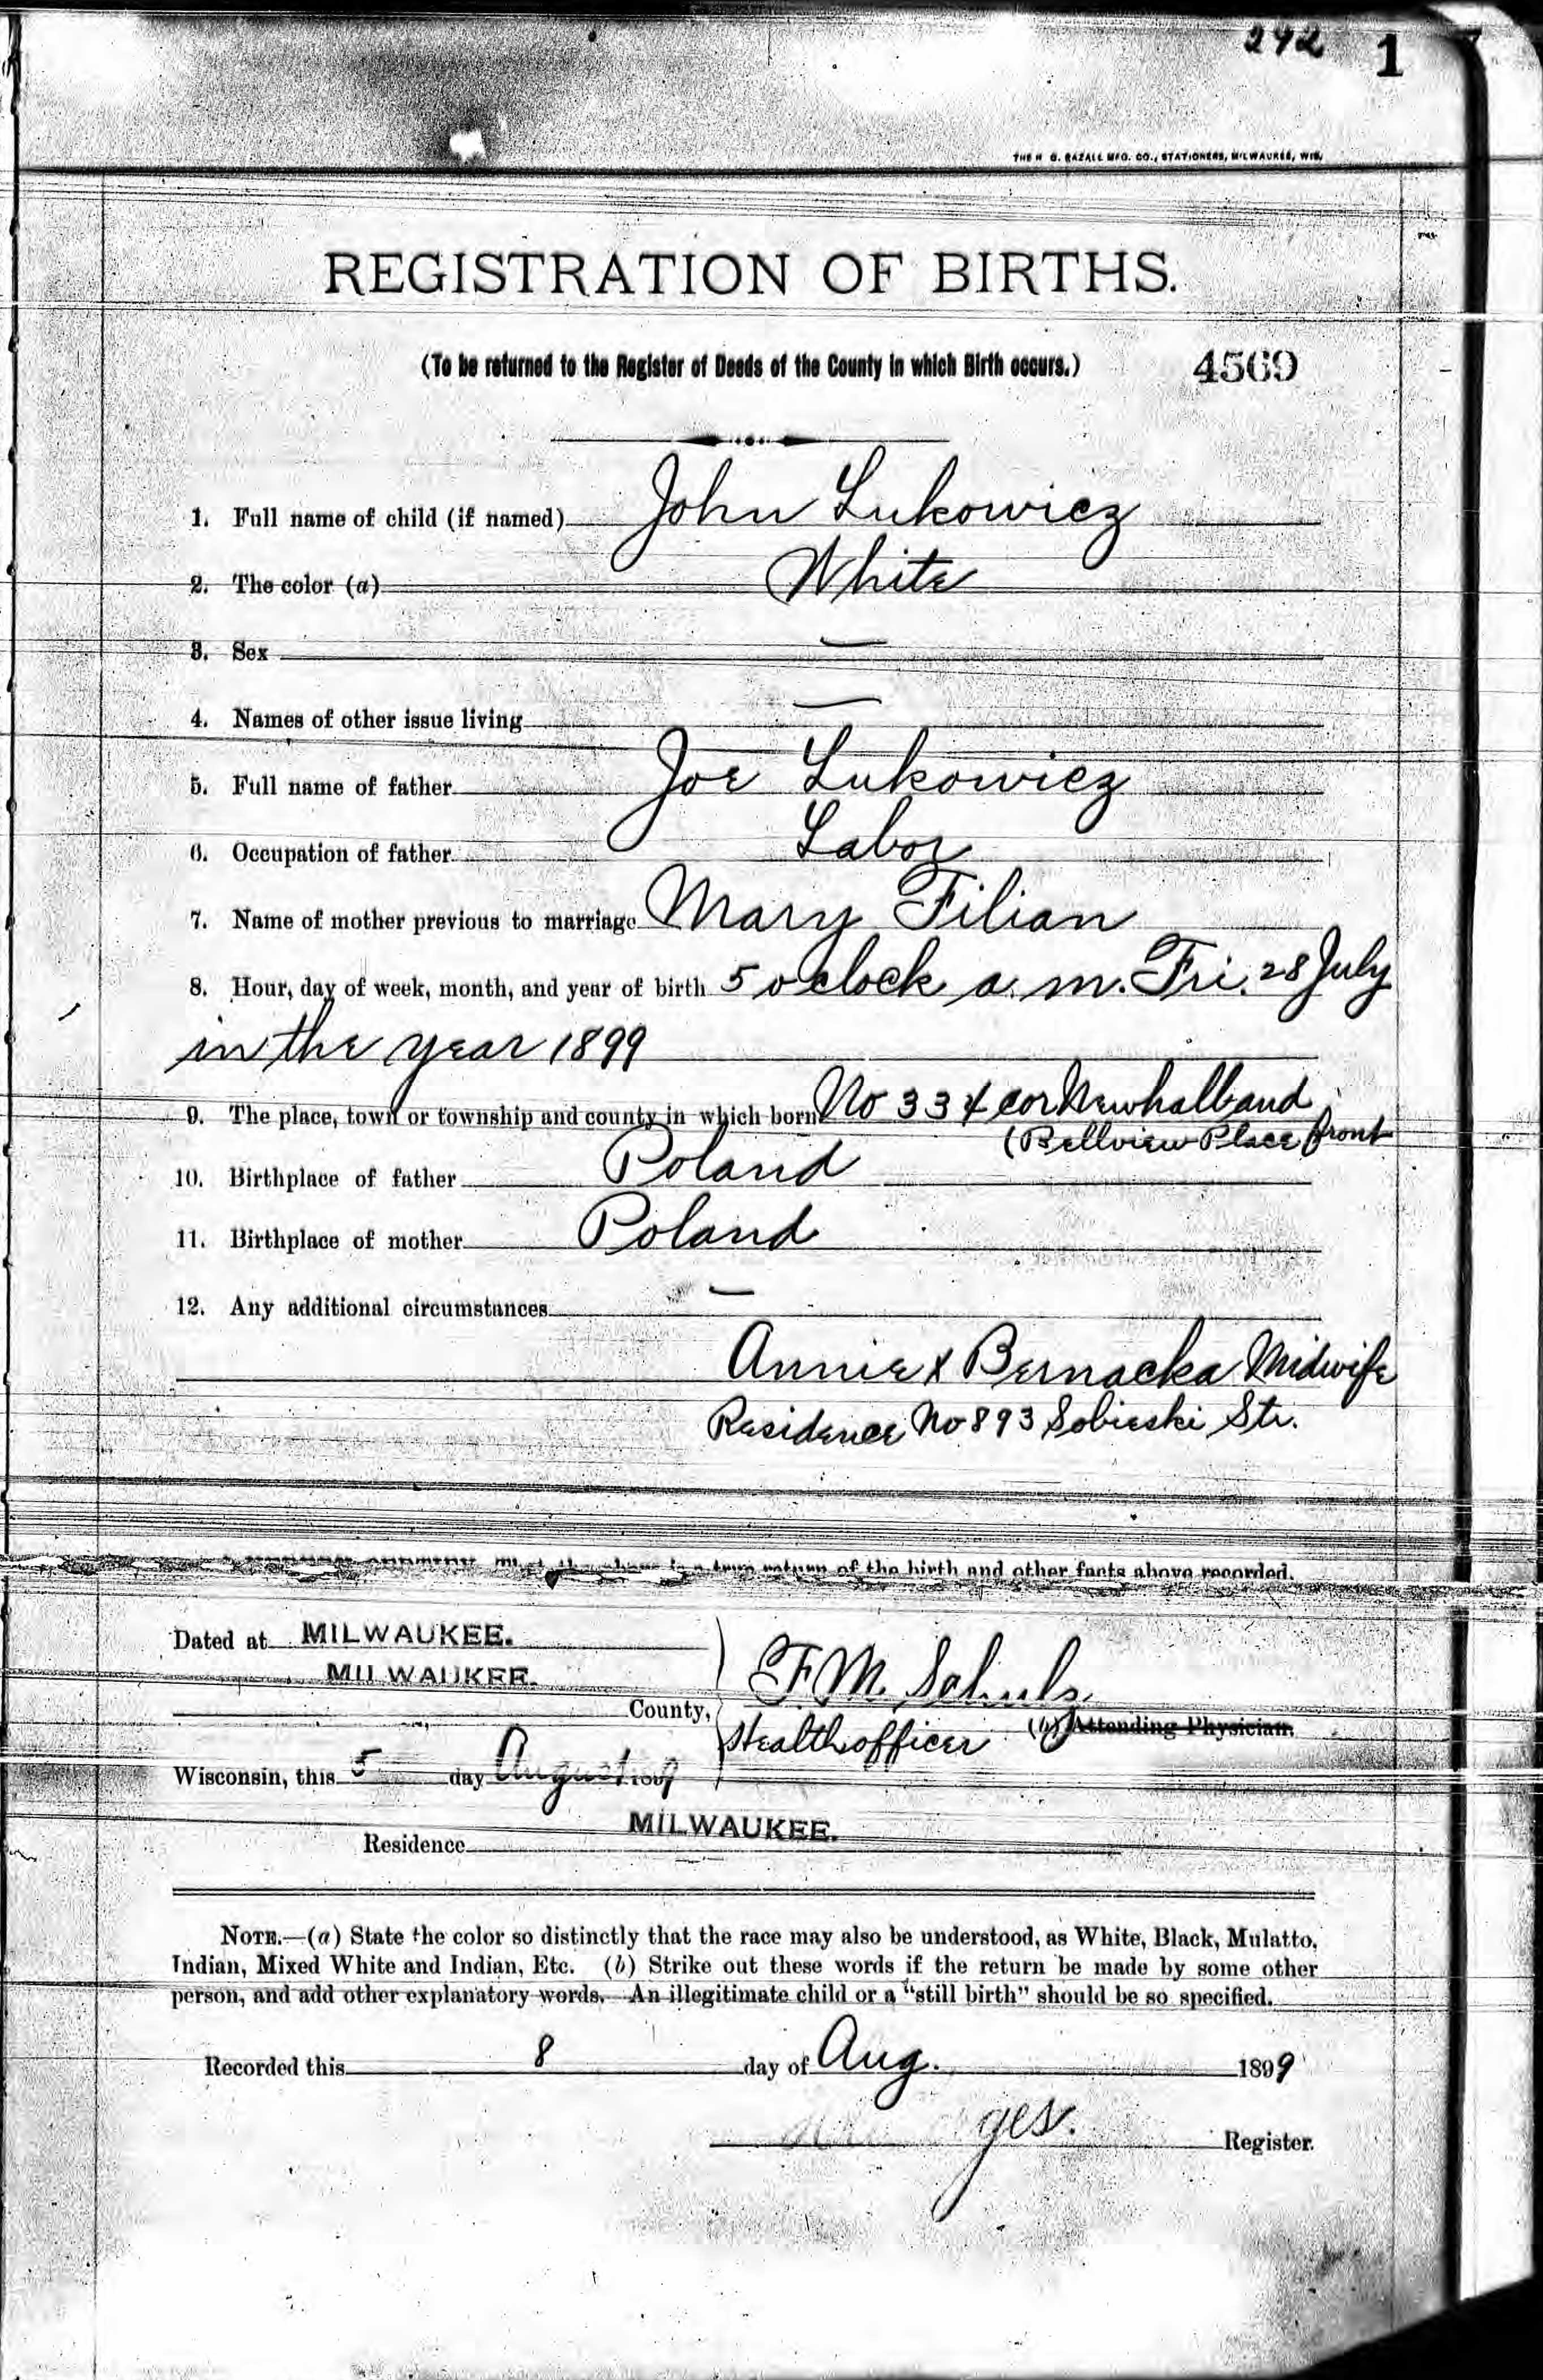 292 1
THE H. G. RAZALL MFG. CO., STATIONERS, MILWAUKEE, WIS.
REGISTRATION OF BIRTHS.
(To be returned to the Register of Deeds of the County in which Birth occurs.) 4569
1. Full name of child (if named) John Lukowicz
2. The color (a) White
3. Sex —
4. Names of other issue living —
5. Full name of father Joe Lukowicz
6. Occupation of father Labor
7. Name of mother previous to marriage Mary Filian
8. Hour, day of week, month, and year of birth 5 o clock a. m. Fri. 28 July
in the year 1899
9. The place, town or township and county in which born No 334 cor Newhall and
(Bellview Place front
10. Birthplace of father Poland
11. Birthplace of mother Poland
12. Any additional circumstances —
Annie x Bernacka Midwife
Residence No 893 Sobieski Str.
the above is a true return of the birth and other facts above recorded.
Dated at MILWAUKEE.
MILWAUKEE.
County, F. M. Schulz
Healthofficer (b) Attending Physician.
Wisconsin, this 5 day August
MILWAUKEE.
Residence
NOTE.—(a) State the color so distinctly that the race may also be understood, as White, Black, Mulatto,
Indian, Mixed White and Indian, Etc. (b) Strike out these words if the return be made by some other
person, and add other explanatory words. An illegitimate child or a "still birth" should be so specified.
Recorded this 8 day of Aug. 1899
Register.